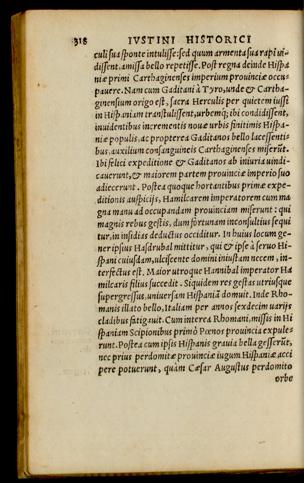 318 IVSTINI HISTORICI
culi sua sponte intulisse: sed quum armenta sua rapi vi-
dissent, amissa bello repetisse. Post regna deinde Hispa
niæ primi Carthaginenses imperium prouinciæ occu-
pauere. Nam cum Gaditani à Tyro, unde & Cartha-
ginensium origo est, sacra Herculis per quietem iussi
in Hispaniam transtulissent, urbemq; ibi condidissent,
inuidentibus incrementis nouæ urbis finitimis Hispa-
niæ populis, ac propterea Gaditanos bello lacessenti-
bus, auxilium consanguineis Carthaginenses miserūt.
Ibi felici expeditione & Gaditanos ab iniuria vindi-
cauerunt, & maiorem partem prouinciæ imperio suo
adiecerunt. Postea quoque hortantibus primæ expe-
ditionis auspicijs, Hamilcarem imperatorem cum ma
gna manu ad occupandam prouinciam miserunt: qui
magnis rebus gestis, dum fortunam inconsultius sequi
tur, in insidias deductus occiditur. In huius locum ge-
ner ipsius Hasdrubal mittitur, qui & ipse à seruo Hi-
spani cuiusdam, ulciscente domini iniustam necem, in-
terfectus est. Maior utroque Hannibal imperator Ha
milcaris filius succedit. Siquidem res gestas utriusque
supergressus, uniuersam Hispaniā domuit. Inde Rho-
manis illato bello, Italiam per annos sexdecim uarijs
cladibus fatigauit. Cum interea Rhomani, missis in Hi
spaniam Scipionibus primò Pœnos prouincia expule
runt. Postea cum ipsis Hispanis grauia bella gesserūt,
nec prius perdomitæ prouinciæ iugum Hispaniæ acci
pere potuerunt, quàm Cæsar Augustus perdomito
orbe